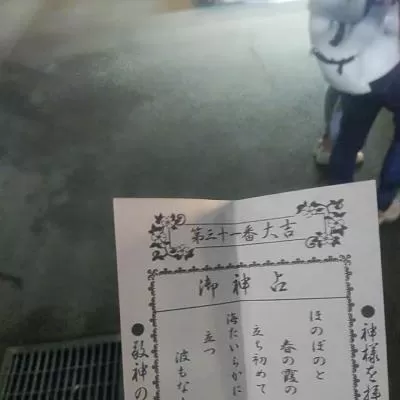 第三十一番大吉
御神占
●神様を拝
ほのぼのと
春の霞の
立ち初めて
海たいらかに
立つ
波もな
●敬神の